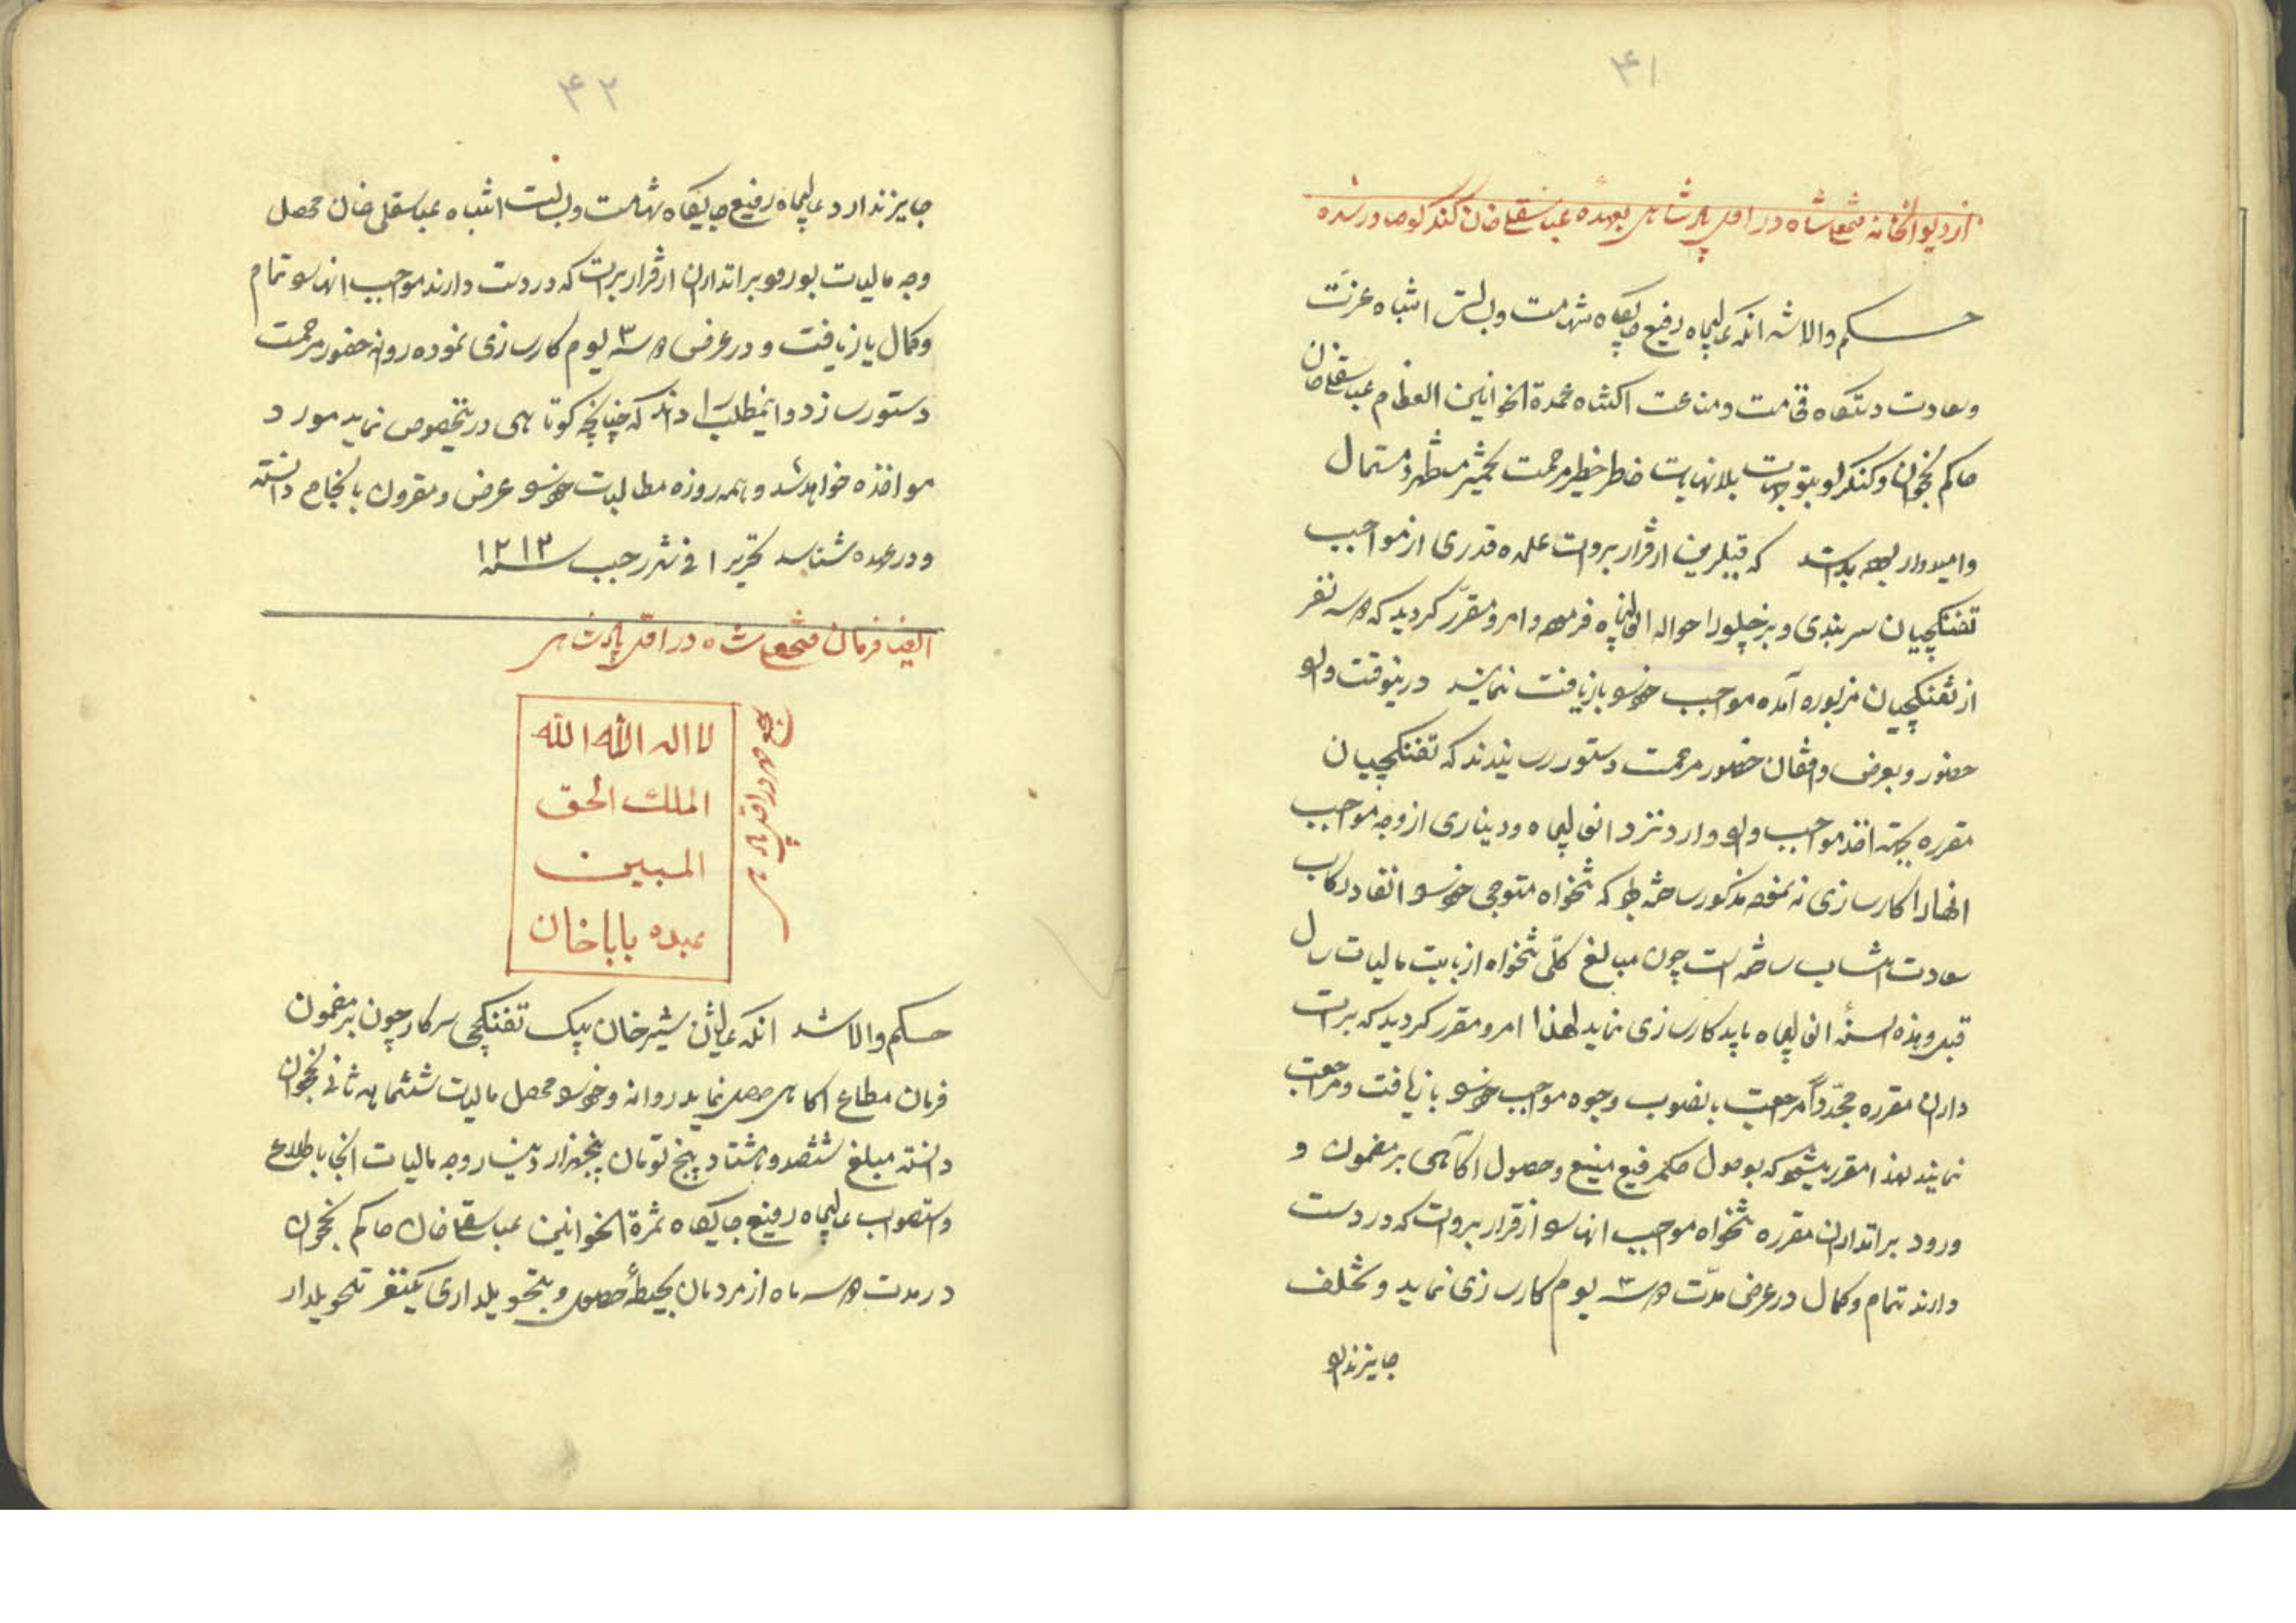 ۴۱
از دیوانخانه فتحعلیشاه در اول پادشاهی بعهده عباسقلی خان کنگرلو صادر شده
حکم والا شد انکه عالیجاه رفیع جایگاه شهامت و بسالت انتباه عزت
و سعادت دستگاه فخامت و مناعت اکتناه عمدة الخوانین العظام عباسقلی خان
حاکم نخجوان و کنگرلو بتوجهات بلانهایات خاطر خطیر مرحمت تخمیر مستظهر و مستمال
و امیدوار بوده بداند که قبل از این از قرار بروات علیحده قدری از مواجب
تفنکچیان سربندی و بزچلو را حواله انعالیجاه فرموده و امر و مقرر کردید که سه نفر
از تفنکچیان مزبوره آمده مواجب خود را بازیافت نمایند درینوقت وارد
حضور و بعرض واقفان حضور مرحمت دستور رسانیدند که تفنکچیان
مقرره بجهة اخذ مواجب وارد نزد انعالیجاه و دیناری از وجه مواجب
انها را کارسازی ننموده مذکور ساخته بود که تنخواه متوجهی خود را انفاد رکاب
سعادت انتساب ساخته است چون مبالغ کلی تنخواه از بابت مالیات سال
قبل و هذه السنه انعالیجاه باید کارسازی نماید لهذا امر و مقرر کردید که برات
داران مقرره مجدداً مراجعت بانصوب وجوه مواجب خود را بازیافت و مراجعت
نمایند لهذا مقرر میشود که بوصول حکم رفیع منیع و حصول اکاهی بر مضمون و
ورود براتداران مقرره تنخواه مواجب انها را از قرار بروات که در دست
دارند تمام و کمال در عرض مدت سه ۳ یوم کارسازی نماید و تخلف
جایز ندارد
۴۲
جایز ندارد عالیجاه رفیع جایگاه شهامت و بسالت انتباه عباسقلی خان محصل
وجه مالیات بورود براتداران از قرار برات که در دست دارند مواجب انها را تمام
و کمال بازیافت و در عرض سه ۳ یوم کارسازی نموده روانه حضور مرحمت
دستور سازد و اینمطلب را داند که چنانچه کوتاهی درینخصوص نماید مورد
مواخذه خواهد شد و همه روزه مطالبات خود را عرض و مقرون بانجاح دانسته
و در عهده شناسد تحریرا فی شهر رجب سنه ۱۲۱۲
ایضا فرمان فتحعلیشاه در اول پادشاهی
لا اله الا الله
الملک الحق
المبین
عبده باباخان
حکم والا شد انکه عالیشان شیر خان بیک تفنکچی سرکار چون بر مضمون
فرمان مطاع اکاهی حاصل نماید روانه و خود را محصل مالیات ششماهه ثانی نخجوان
دانسته مبلغ ششصد و هشتاد پنج تومان پنجهزار دینار وجه مالیات انجا باطلاع
و استصواب عالیجاه رفیع جایگاه ثمرة الخوانین عباسقلی خان حاکم نخجوان
در مدت سه ماه از مردمان بحیطهٔ حصول و بتحویلداری یکنفر تحویلدار